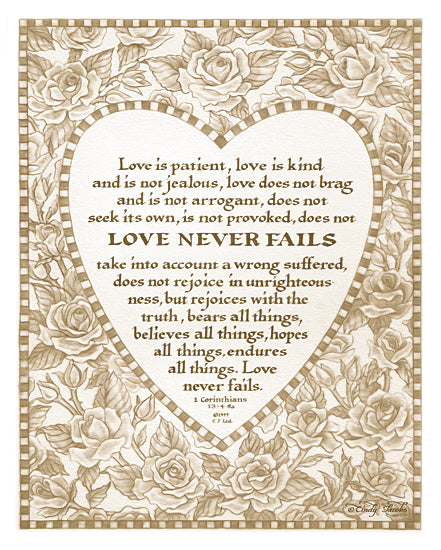 Love is patient, love is kind
and is not jealous, love does not brag
and is not arrogant, does not
seek its own, is not provoked, does not
LOVE NEVER FAILS
take into account a wrong suffered,
does not rejoice in unrighteous-
ness, but rejoices with the
truth, bears all things,
believes all things, hopes
all things, endures
all things. Love
never fails.
1 Corinthians
13·4-8a
©1999
© Cindy Jacobs